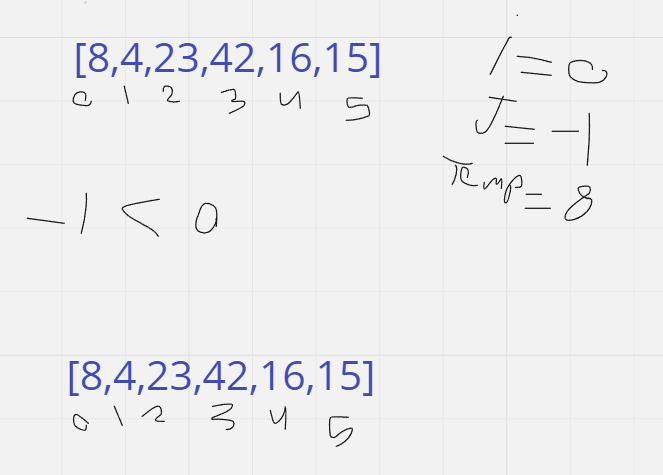 [8,4,23,42,16,15]
0 1 2 3 4 5
i = 0
J = -1
Temp = 8
-1 < 0
[8,4,23,42,16,15]
0 1 2 3 4 5